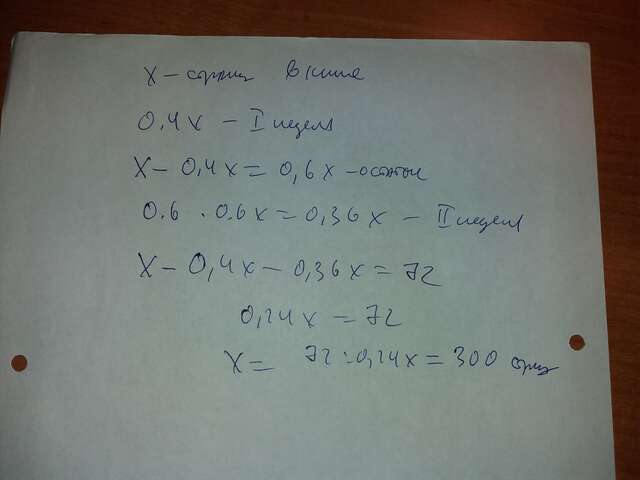 x – страниц в книге
0,4x – I неделя
x – 0,4x = 0,6x – остаток
0.6 · 0.6x = 0,36x – II неделя
x – 0,4x – 0,36x = 72
0,24x = 72
x = 72:0,24x = 300 стр